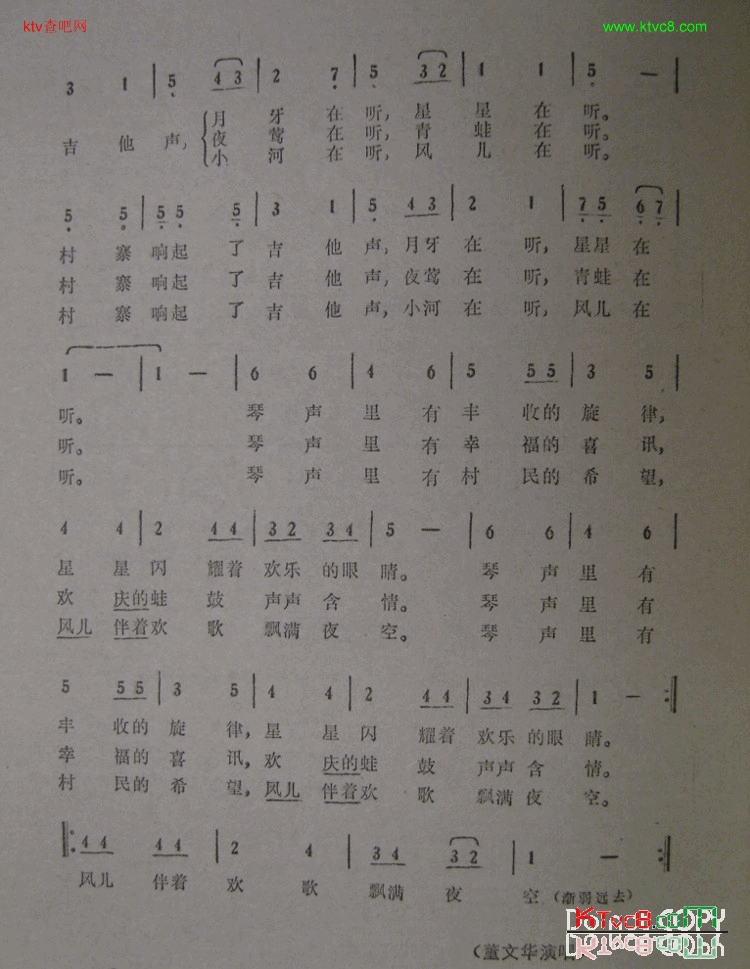 ktv查吧网
www.ktvc8.com
3 1 | 5 4 3 | 2 7 | 5 3 2 | 1 1 | 5 — |
吉他声,{月牙在听,星星在听。
夜莺在听,青蛙在听。
小河在听,风儿在听。
5 5 | 5 5 5 | 3 1 | 5 4 3 | 2 1 | 7 5 6 7 |
村寨响起了吉他声,月牙在听,星星在
村寨响起了吉他声,夜莺在听,青蛙在
村寨响起了吉他声,小河在听,风儿在
1 — | 1 — | 6 6 | 4 6 | 5 5 5 | 3 5 |
听。琴声里有丰收的旋律,
听。琴声里有幸福的喜讯,
听。琴声里有村民的希望,
4 4 | 2 4 4 | 3 2 3 4 | 5 — | 6 6 | 4 6 |
星星闪耀着欢乐的眼睛。琴声里有
欢庆的蛙鼓声声含情。琴声里有
风儿伴着欢歌飘满夜空。琴声里有
5 5 5 | 3 5 | 4 4 | 2 4 4 | 3 4 3 2 | 1 — :|
丰收的旋律,星星闪耀着欢乐的眼睛。
幸福的喜讯,欢庆的蛙鼓声声含情。
村民的希望,风儿伴着欢歌飘满夜空。
|: 4 4 4 4 | 2 4 | 3 4 3 2 | 1 — :|
风儿伴着欢歌飘满夜空(渐弱远去)
DO NOT COPY
KTvc8.com
(董文华演唱)